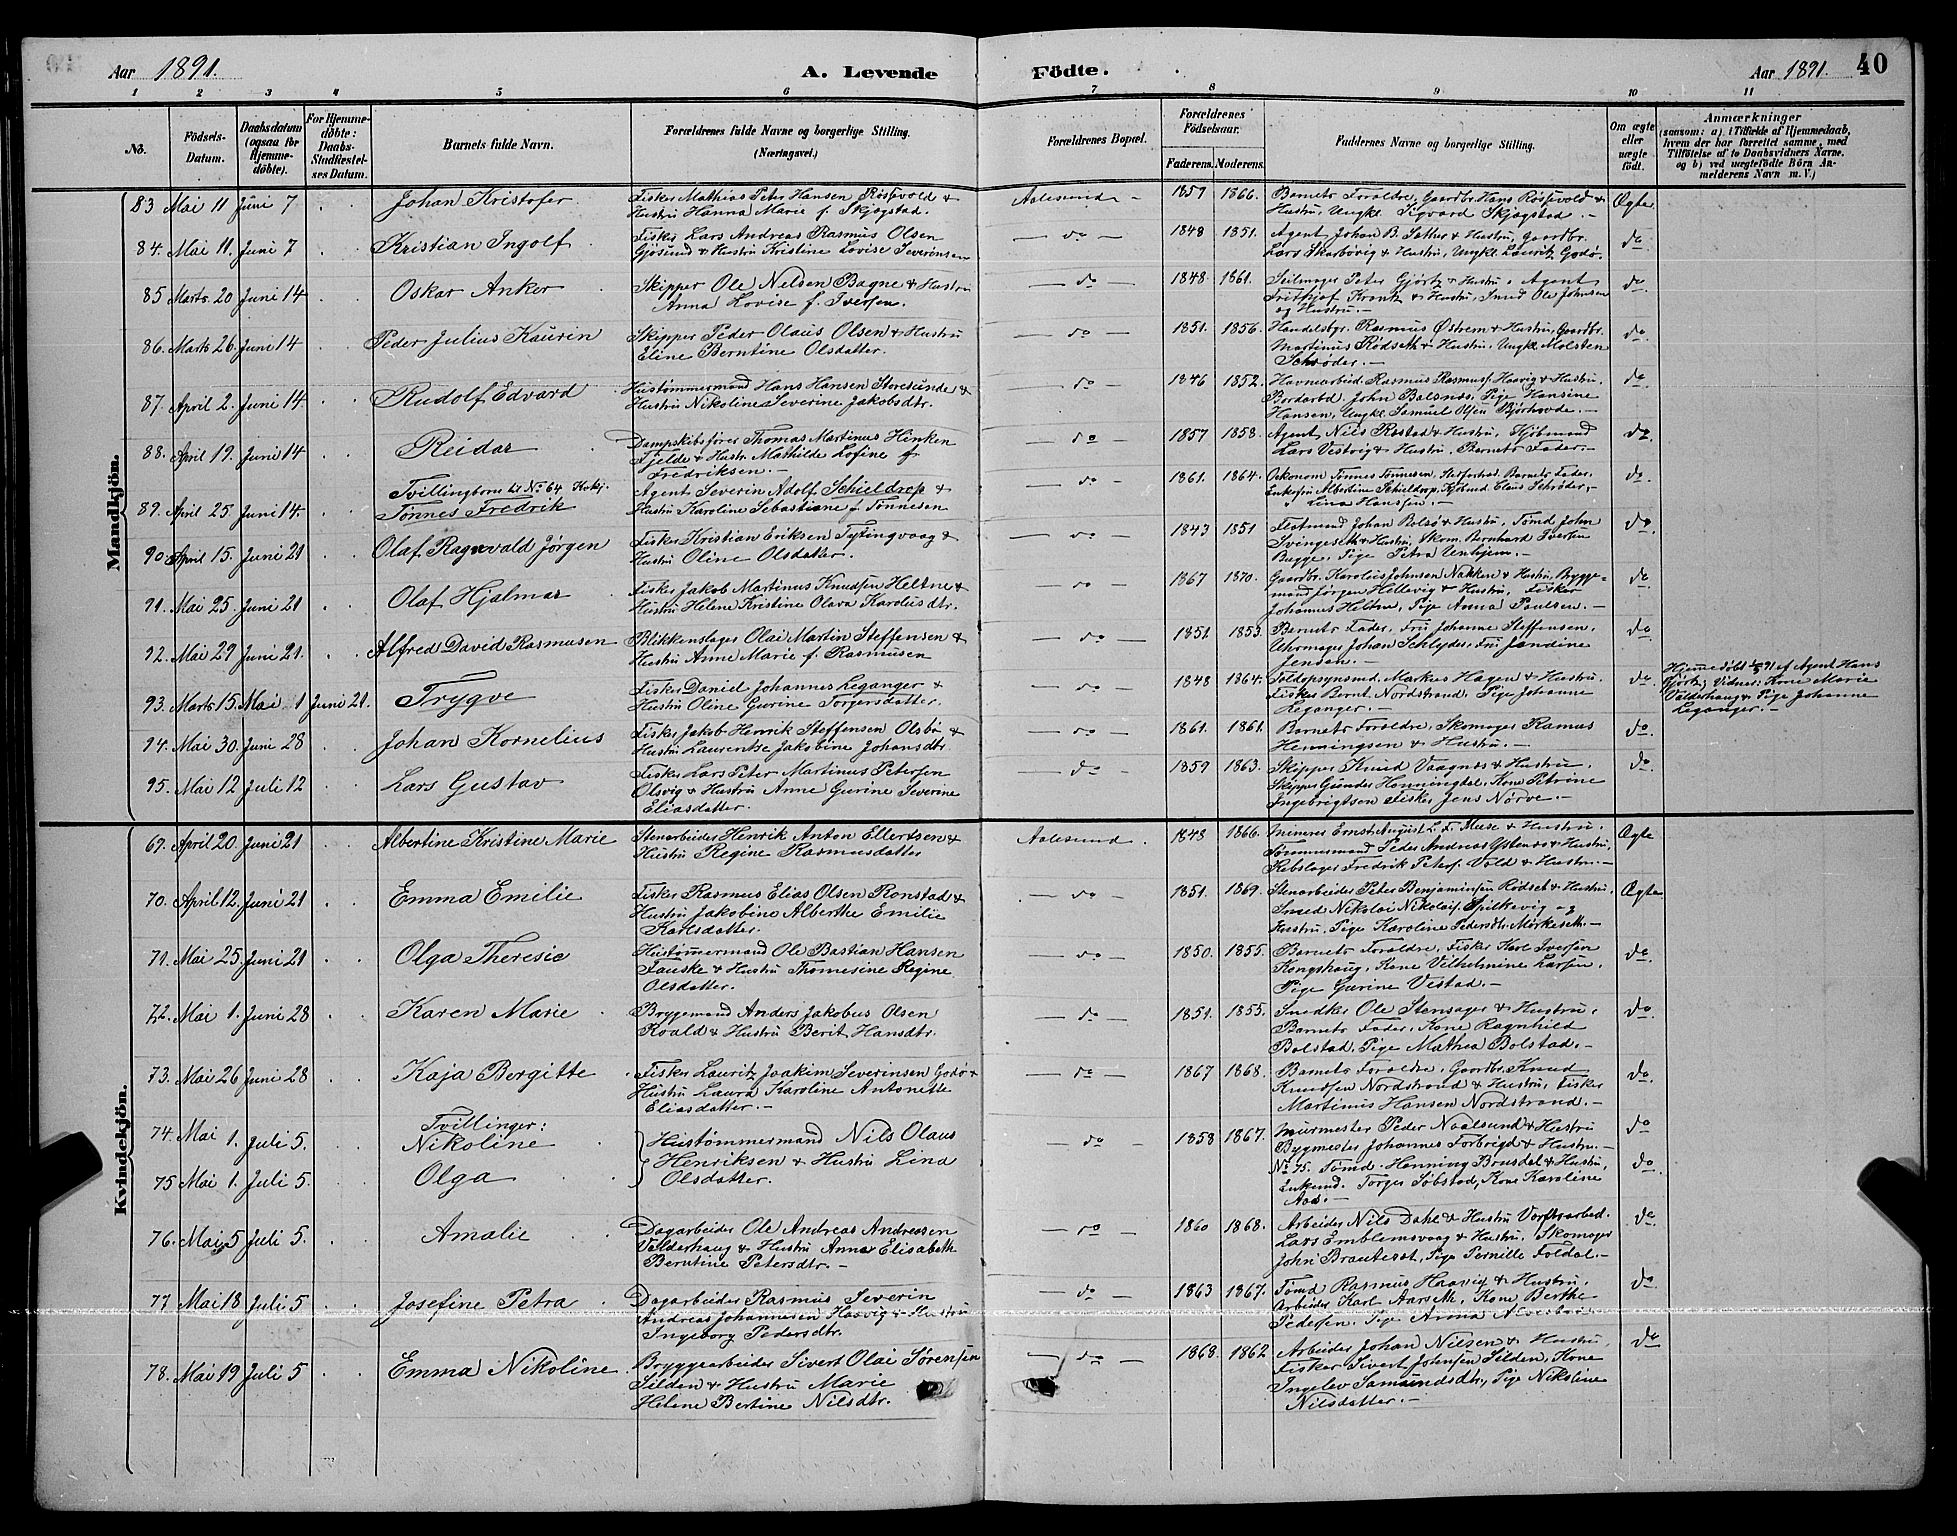 Aar 1891. A. Levende Födte. Aar 1891. 40
1 2 3 4 5 6 7 8 9 10 11
No. Födsels-Datum. Daabsdatum (ogsaa for Hjemme-döbte). For Hjemme-döbte: Daabs-Stadfæstel-ses Datum. Barnets fulde Navn. Forældrenes fulde Navne og borgerlige Stilling. (Næringsvei.) Forældrenes Bopæl. Forældrenes Födselsaar. Faderens. Moderens. Faddernes Navne og borgerlige Stilling. Om ægte eller uægte født. Anmærkninger (saasom: a) i Tilfælde af Hjemmedaab, hvem der har forrettet samme, med Tilföielse af to Daabsvidners Navne, og b) ved uægtefödte Börn An-melderens Navn m. V.)
Mandkjön.
83 Mai 11 Juni 7 Johan Kristofer Fisker Mathias Peter Hansen Rössevold &
Hustru Hanna Marie f. Skjøgstad. Aalesund 1857 1866. Barnets Foraldre, Gaardbr. Hans Røssevold &
Hustru, Ungkl. Sigvard Skjøgstad. Ægte
84. Mai 11. Juni 7 Kristian Ingolf Fisker Lars Andreas Rasmus Olsen
Gjøsund & Hustru Kristine Lovise Severinsen do 1848 1851. Agent Johan B. Sather & Hustru, Gaardbr.
Lars Skorbøvig & Hustru, Ungkl. Lauritz Godø. do
85 Marts. 20 Juni 14 Oskar Anker Skipper Ole Nelsen Bagne & Hustru
Anna Lovise f. Iversen. do 1848. 1861. Seilmager Peter Gjørtz & Hustru, Agent
Fritthjof Krantz & Hustru, Smed Ole Johnsen
og Hustru. do
86. Marts 26. Juni 14 Peder Julius Kaurin Skipper Peder Olaus Olsen & Hustru
Eline Berntine Olsdatter. do 1851. 1856. Handelsbgr. Rasmus Østrem & Hustru, Gaardbr.
Martinus Rødseth & Hustru, Ungkl. Molsten
Schrøder. do
87. April 2. Juni 14. Rudolf Edvard Hustømmermand Hans Hansen Storesunde &
Hustru Nikoline Severine Jakobsdtr. do 1846 1852. Havnearbeid. Rasmus Rasmusf. Haavig & Hustru.
Bordarbd. John Balsnes, Pige Hansine
Hansen, Ungkl. Samuel Olsen Bjørhovde. do
88. April 19. Juni 14 Reidar Dampskibsfører Thomas Martinus Hinken
Fjelde & Hustr. Mathilde Lofine f
Fredriksen. do 1857 1858. Agent Nils Rostad & Hustru, Kjøbmand
Lars Vestvig & Hustru, Barnets Fader. do
Tvillingbarn til No 64 Kvkj.
89. April 25 Juni 14. Tønnes Fredrik Agent Severin Adolf Schieldrop &
Hustru Karoline Sebastiane f. Tønnesen do 1861. 1864. Oekonom Tønnes Tønnesen,
Enkefru Albertine Schieldrop, Kjøbmd. Claus Schrøder,
Lina Hanssen. do
90. April 15. Juni 21 Olaf Ragnvald Jørgen Fisker Kristian Eriksen Tytingvaag &
Hustru Oline Olsdatter. do 1843 1851 Flotmand Johan Bolsø & Hustru, Tømd. John
Svingeseth & Hustru, Skom. Bernhard Iversen
Bugge. Pige Petra Unhjem. do
91. Mai 25 Juni 21 Olaf Hjalmar Fisker Jakob Martinus Knudsen Heltne &
Hustru Helene Kristine Olava Karolusdtr. do 1867 1870. Gaardbr. Karolus Johnsen Nakken & Hustru, Brygge-
mand Jørgen Hellevig & Hustru, Fisker
Johannes Heltne, Pige Anna Paulsen. do
92. Mai 29 Juni 21. Alfred David Rasmusen Blikkenslager Olai Martin Steffensen &
Hustru Anne Marie f. Rasmusen do 1851 1853. Barnets Fader, Fru Johanne Steffensen,
Uhrmager Johan Schlyder, Fru Jendine
Jensen. do
93. Marts 15. Mai 1 Juni 21. Trygve Fisker Daniel Johannes Leganger &
Hustru Oline Gurine Torgersdatter. do 1848 1864. Toldopsynsmd. Markus Hagen & Hustru.
Fisker Bernt Nordstrand, Pige Johanne
Leganger. do Hjemmedøbt 1/5 91 af Agent Hans
Gjørtz, Vidner: Kone Marie
Valderhaug & Pige Johanne
Leganger.
94. Mai 30. Juni 28 Johan Kornelius Fisker Jakob Henrik Steffensen Olsbø &
Hustru Laurentse Jakobine Johansdtr. do 1861. 1861. Barnets Foraldre, Skomager Ramus
Henningsen & Hustru. do
95. Mai 12 Juli 12 Lars Gustav Fisker Lars Peter Martinus Petersen
Olsvig & Hustru Anne Gurine Severine
Eliasdatter. do 1859 1863. Skipper Knud Vaagnes & Hustru.
Skipper Gunder Honningdal, Kone Petrine
Ingebrigtsen Fisker Jens Nørve. do
Kvindekjön.
69. April 20. Juni 21 Albertine Kristine Marie Stenarbeider Henrik Anton Ellertsen &
Hustru Regine Rasmusdatter Aalesund. 1848 1866. Minerer Ernst August L. F. Muse & Hustru.
Tømmermand Peder Andreas Ystenes & Hustru,
Rebslager Fredrik Peters. Vold & Hustru. Ægte
70. April 12. Juni 21 Emma Emilie Fisker Rasmus Elias Olsen Ronstad &
Hustru Jakobine Alberthe Emilie
Karlsdatter. do 1851. 1869. Stenarbeider Peter Benjaminsen Rødset & Hustru,
Smed Nikolai Nikolais. Spilkevig og
Hustru, Pige Karoline Pedersdtr. Mørkeseth. Ægte
71. Mai 25. Juni 21 Olga Theresie Hustømmermand Ole Bastian Hansen
Fauske & Hustru Thomesine Regine
Olsdatter. do 1850. 1855. Barnets Foraldre, Fisker Karl Iversen
Kongshaug, Kone Vilhelmine Larsen,
Pige Gurine Vestad. do
72. Mai 1. Juni 28 Karen Marie Bryggemand Anders Jakobus Olsen
Roald & Hustru Berit Hansdtr. do 1851. 1855. Snedker Ole Stensager & Hustru,
Barnets Fader, Kone Ragnhild
Bolstad, Pige Mathea Bolstad. do
73. Mai 26 Juni 28 Kaja Bergitte Fisker Lauritz Joakim Severinsen Godø &
Hustru Laura Karoline Antonette
Eliasdatter. do 1867 1868. Barnets Foraldre, Gaardbr. Knud
Knudsen Nordstrand & Hustru, Fisker
Martinus Hansen Nordstrand. do
Tvillinger:
74. Mai 1. Juli 5. Nikoline Hustømmermand Nils Olaus
Henriksen & Hustru Lina
Olsdatter. do 1858 1867. Murmester Peder Naalsund & Hustru
Bygmester Johannes Forbrigd & Hustru. do
75 Mai 1. Juli 5. Olga No 75. Tømd. Henning Brusdal & Hustru,
Enkemd. Torger Søbstad, Kone Karoline
Aas. do
76. Mai 5 Juli 5. Amalie Dagarbeider Ole Andreas Andreasen
Valderhaug & Hustru Anna Elisabeth
Berntine Petersdtr. do 1860 1868. Arbeider Nils Dahl & Hustru Verftsarbed.
Lars Emblemsvaag & Hustru, Skomager
John Brauteset, Pige Pernille Foldal. do
77 Mai 18 Juli 5 Josefine Petra Dagarbeider Rasmus Severin
Andreas Johannesen Haavig & Hustru
Ingeborg Pedersdtr. do 1863 1867. Tømd Rasmus Haavig & Hustru,
Arbeider Karl Aarseth, Kone Berthe
Pedersen, Pige Anna do
78. Mai 19 Juli 5 Emma Nikoline Bryggearbeider Sivert Olai Sørensen
Silden & Hustru Marie
Helene Bertine Nilsdtr. do 1868. 1862 Arbeider Johan Nilsen & Hustru,
Fisker Sivert Johnsen Silden, Kone
Ingelev Samundsdtr, Pige Nikoline
Nilsdatter. do